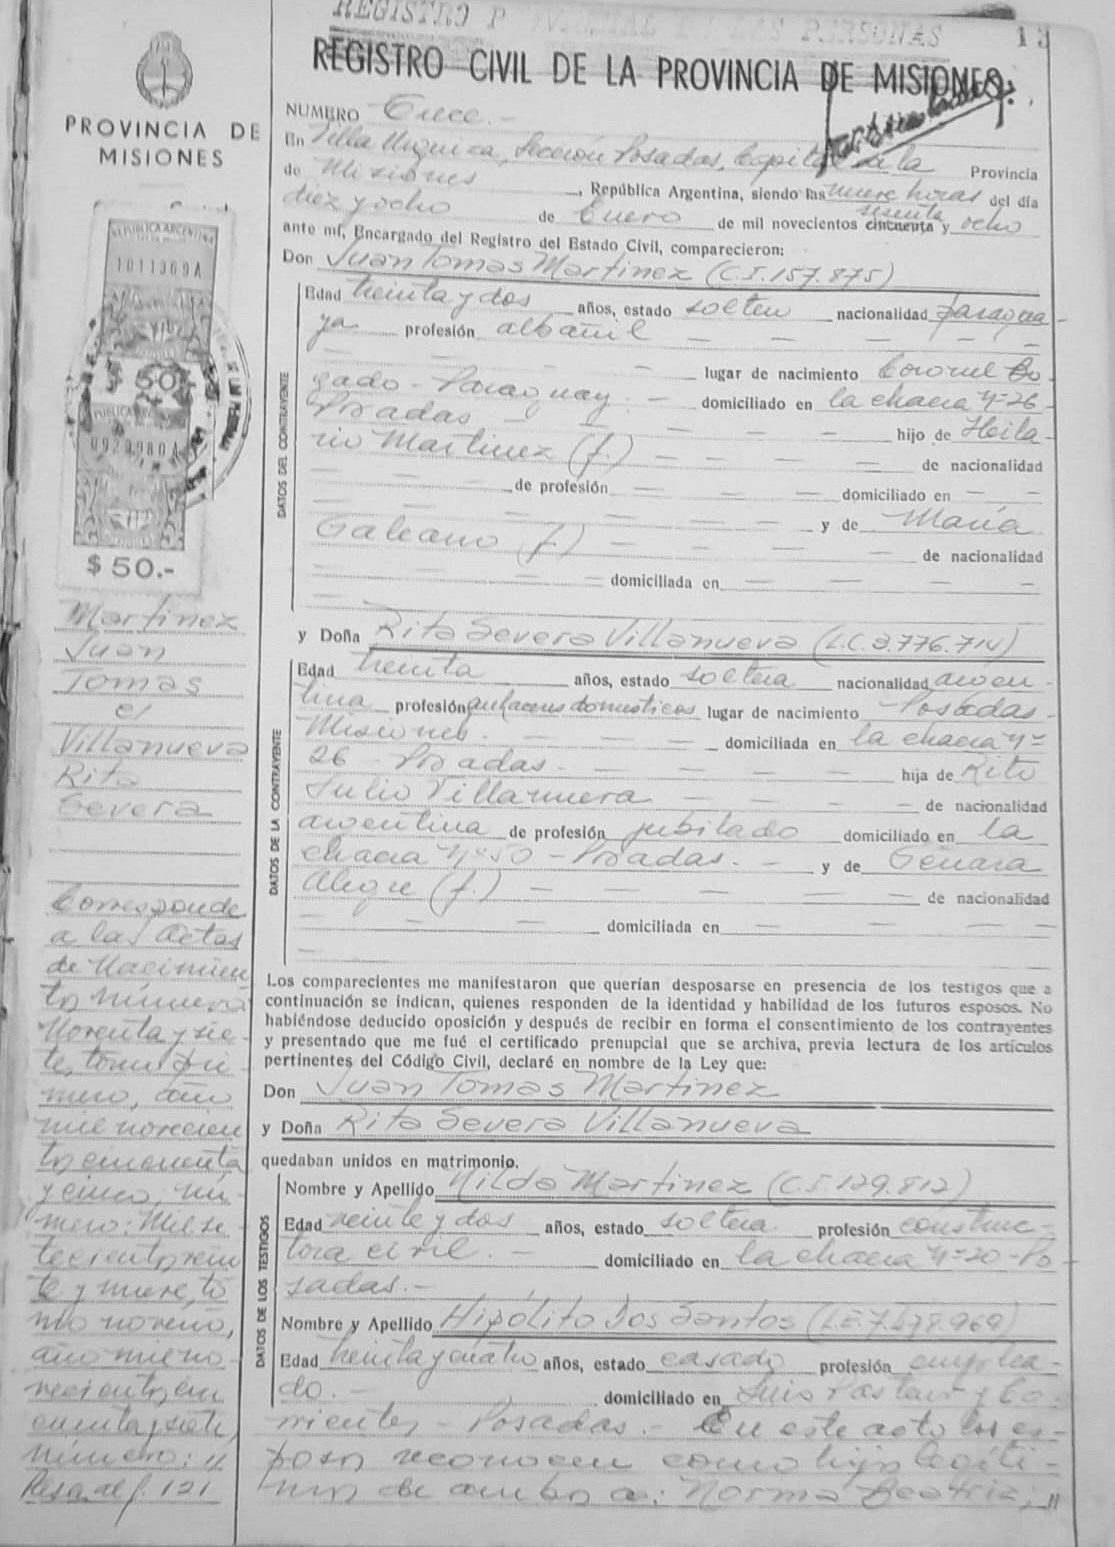 REGISTRO PROVINCIAL DE LAS PERSONAS
13
REGISTRO CIVIL DE LA PROVINCIA DE MISIONES
PROVINCIA DE
MISIONES
REPUBLICA ARGENTINA
1011369A
$ 50
0920980A
$ 50.-
NUMERO Trece.-
En Villa Urquiza, Sección Posadas, Capital de la Provincia
de Misiones, República Argentina, siendo las nueve horas del día
diez y ocho de Enero de mil novecientos cincuenta sesenta y ocho
ante mí, Encargado del Registro del Estado Civil, comparecieron:
Don Juan Tomas Martinez (C.I.157.875)
DATOS DEL CONTRAYENTE
Edad treinta y dos años, estado soltero nacionalidad paragua-
ya profesión albañil — — — — —
— — — lugar de nacimiento Coronel Bo-
gado - Paraguay. — domiciliado en la chacra Nº 26-
Posadas — — — — hijo de Hila-
rio Martinez (f.) — — — — de nacionalidad
— — — de profesión — — — domiciliado en — —
— — — — — y de María
Galeano (f.) — — — — de nacionalidad
— — — — domiciliada en — — — —
y Doña Rita Severa Villanueva (L.C.3.776.714)
DATOS DE LA CONTRAYENTE
Edad treinta años, estado soltera nacionalidad argen-
tina profesión quehaceres domesticos lugar de nacimiento Posadas-
Misiones. — — — domiciliada en la chacra Nº
26 - Posadas. — — — — hija de Rito
Julio Villanueva — — — — de nacionalidad
argentina de profesión jubilado domiciliado en la
chacra Nº 50 - Posadas. - y de Genara
Alegre (f.) — — — — — de nacionalidad
— — — — domiciliada en — — — —
—
Los comparecientes me manifestaron que querían desposarse en presencia de los testigos que a
continuación se indican, quienes responden de la identidad y habilidad de los futuros esposos. No
habiéndose deducido oposición y después de recibir en forma el consentimiento de los contrayentes
y presentado que me fué el certificado prenupcial que se archiva, previa lectura de los artículos
pertinentes del Código Civil, declaré en nombre de la Ley que:
Don Juan Tomas Martinez
y Doña Rita Severa Villanueva
quedaban unidos en matrimonio.
DATOS DE LOS TESTIGOS
Nombre y Apellido Nilda Martinez (C.I.129.812)
Edad veinte y dos años, estado soltera profesión construc-
tora civil. — domiciliado en la chacra Nº 20 - Po-
sadas.-
Nombre y Apellido Hipólito Dos Santos (L.E.7.478.969)
Edad treinta y cuatro años, estado casado profesión emplea-
do. — domiciliado en Luis Pasteur y Co-
rrientes - Posadas.- En este acto los es-
posos reconocen como hijos legíti-
mos de ambos a: Norma Beatriz; "
Martinez
Juan
Tomas
c/
Villanueva
Rita
Severa
Corresponde
a las actas
de Nacimien
tos números
Noventa y sie-
te, tomo pri-
mero, año
mil novecien
tos cincuenta
y cinco, nú-
mero: Mil se
tecientos vein
te y nueve, to
mo noveno,
año mil no-
vecientos cin
cuenta y siete,
número: "
Pasa al f. 121